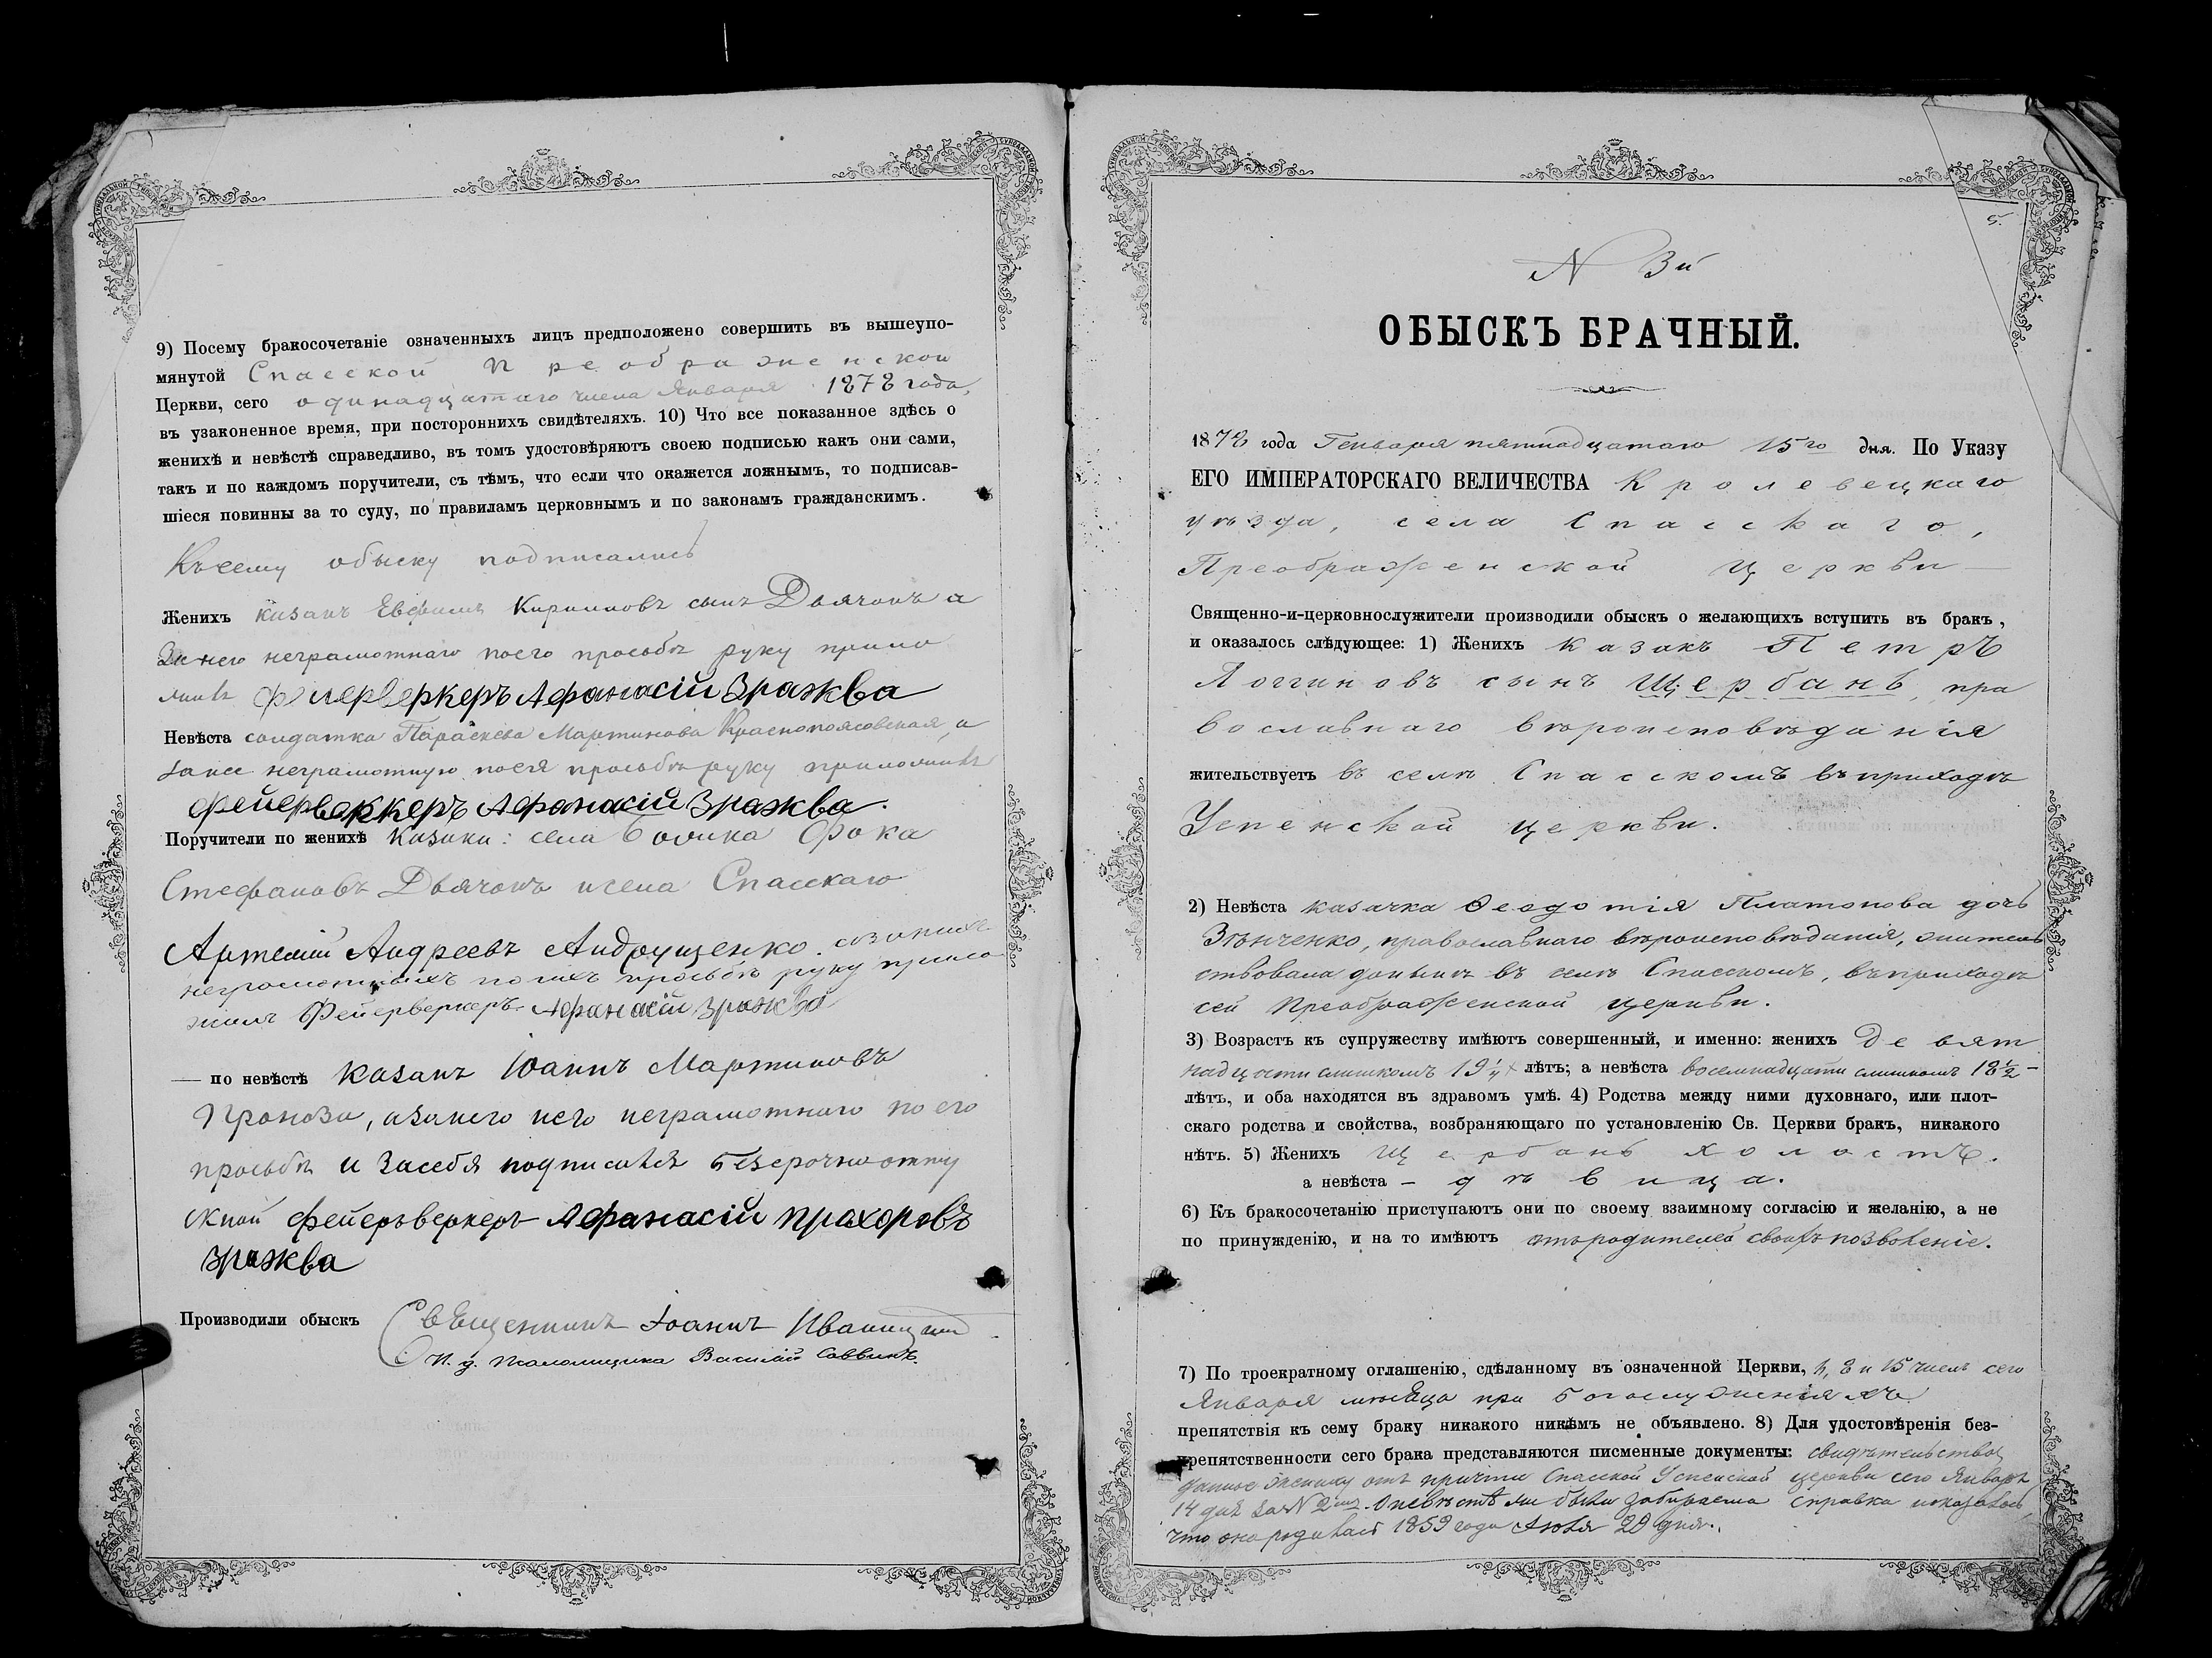 9) Посему бракосочетаніе означенныхъ лицъ предположено совершить въ вышеупо-
мянутой Спасской Преображенской
Церкви, сего одинадцатаго числа Января 1878 года,
въ узаконенное время, при постороннихъ свидѣтеляхъ. 10) Что все показанное здѣсь о
женихѣ и невѣстѣ справедливо, въ томъ удостовѣряютъ своею подписью какъ они сами,
такъ и по каждомъ поручители, съ тѣмъ, что если что окажется ложнымъ, то подписав-
шіеся повинны за то суду, по правиламъ церковнымъ и по законамъ гражданскимъ.
Къ сему обыску подписались
Женихъ казакъ Евфимъ Кириловъ сынъ Дьячокъ а
За него неграмотнаго по его просьбѣ руку прило
жилъ фиерверкеръ Афанасій Зражква
Невѣста солдатка Параскева Мартинова Краснопоясовская, а
за нее неграмотную по ея просьбѣ руку приложилъ
фейерверкеръ Афонасій Зражква.
Поручители по женихѣ Казаки: села Фока
Стефановъ Дьячокъ и села Спасскаго
Артемій Андреевъ Андрущенко. а за нихъ
неграмотныхъ по ихъ просьбѣ руку прило
жилъ Фейерверкеръ Афанасій Зражква
— по невѣстѣ Казакъ Іоаннъ Мартиновъ
Проноза, а за него неграмотнаго по его
просьбѣ и за себя подписался безсрочноотпу
скной фейерьверкеръ Афанасій Прохоровъ
Зражква
Производили обыскъ Священникъ Іоаннъ Иваницкій
И. д. псаломщика Василій Саввинъ.
5.
N 3й
ОБЫСКЪ БРАЧНЫЙ.
1878 года Генваря пятнадцатаго 15го дня. По Указу
ЕГО ИМПЕРАТОРСКАГО ВЕЛИЧЕСТВА Кролевецкаго
уѣзда, села Спасскаго,
Преображенской Церкви —
Священно-и-церковнослужители производили обыскъ о желающихъ вступить въ бракъ,
и оказалось слѣдующее: 1) Женихъ казакъ Петръ
Логгиновъ сынъ Щербань, пра
вославнаго вѣроисповѣданія
жительствуетъ въ селѣ Спасскомъ въ приходѣ
Успенской церкви.
2) Невѣста казачка Ѳеодотія Платонова дочь
Зѣнченко, православнаго вѣроисповѣданія, житель
ствовала донынѣ въ селѣ Спасскомъ, въ приходѣ
сей Преображенской церкви.
3) Возрастъ къ супружеству имѣютъ совершенный, и именно: женихъ девят
надцати слишкомъ 19 1/4 лѣтъ; а невѣста восемнадцати слишкомъ 18 1/2 —
лѣтъ, и оба находятся въ здравомъ умѣ. 4) Родства между ними духовнаго, или плот-
скаго родства и свойства, возбраняющаго по установленію Св. Церкви бракъ, никакого
нѣтъ. 5) Женихъ Щербань холостъ.
а невѣста — дѣвица.
6) Къ бракосочетанію приступаютъ они по своему взаимному согласію и желанію, а не
по принужденію, и на то имѣютъ отъ родителей своихъ позволеніе.
7) По троекратному оглашенію, сдѣланному въ означенной Церкви, 8 и 15 числъ сего
Января мѣсяца при богослуженіяхъ
препятствія къ сему браку никакого никѣмъ не объявлено. 8) Для удостовѣренія без-
препятственности сего брака представляются писменные документы: свидѣтельство,
данное жениху отъ причта Спасской Успенской церкви сего Января
14 дня за N 2мъ. О невѣстѣ была справка и оказалось
что она родилась 1859 года 20 дня.